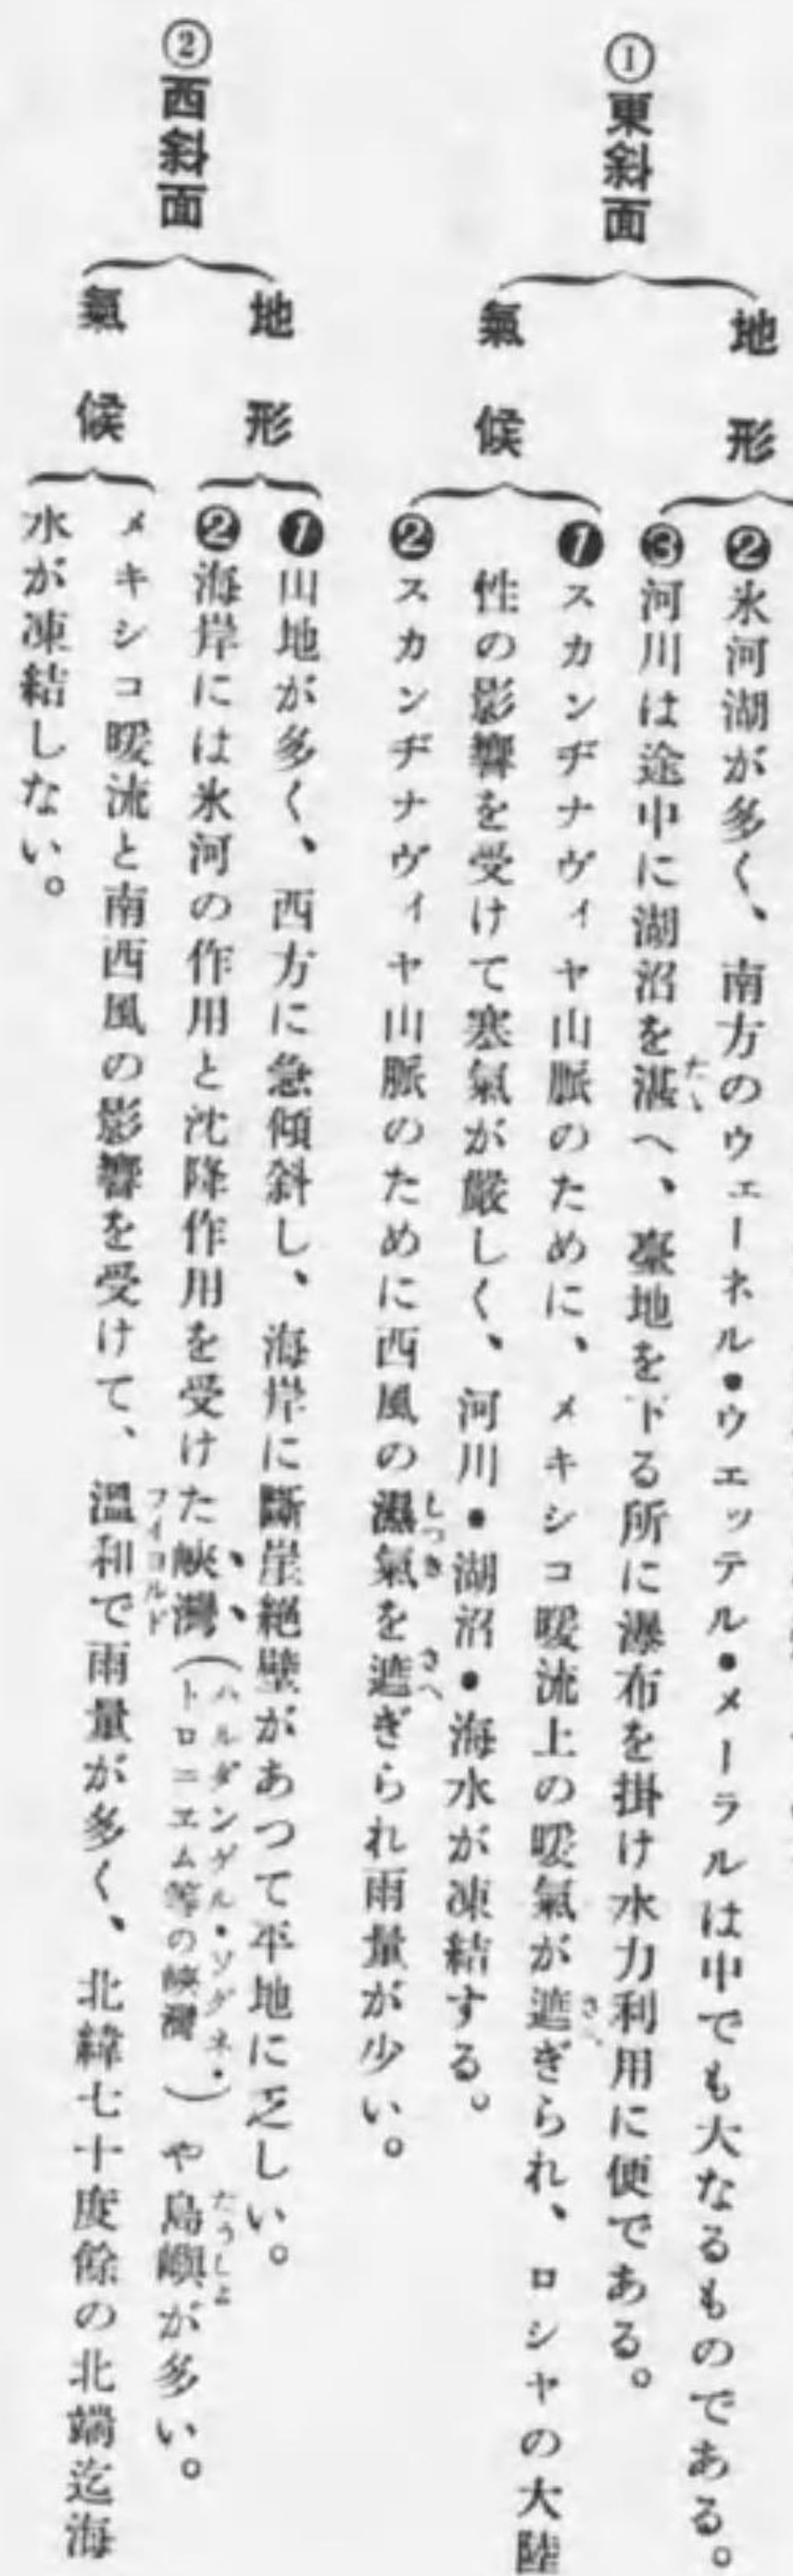 ①東斜面
地形
❷氷河湖が多く、南方のウェーネル・ウエッテル・メーラルは中でも大なるものである。
❸河川は途中に湖沼を湛へ、臺地を下る所に瀑布を掛け水力利用に便である。
氣候
❶スカンヂナヴィヤ山脈のために、メキシコ暖流上の暖氣が遮ぎられ、ロシヤの大陸
性の影響を受けて寒氣が嚴しく、河川・湖沼・海水が凍結する。
❷スカンヂナヴィヤ山脈のために西風の濕氣を遮ぎられ雨量が少い。
②西斜面
地形
❶山地が多く、西方に急傾斜し、海岸に斷崖絕壁があつて平地に乏しい。
❷海岸には氷河の作用と沈降作用を受けた峽灣(ハルダンゲル・ソグネ・トロニエム等の峽灣)や島嶼が多い。
氣候
メキシコ暖流と南西風の影響を受けて、溫和で雨量が多く、北緯七十度餘の北端迄海
水が凍結しない。